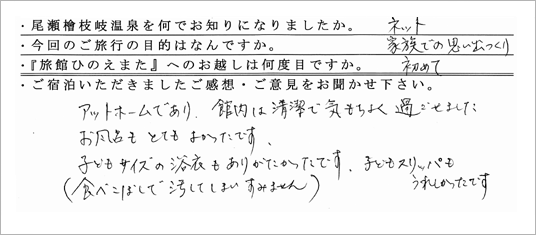 ・尾瀬檜枝岐温泉を何でお知りになりましたか。 ネット
・今回のご旅行の目的はなんですか。 家族での思い出つくり
・『旅館ひのえまた』へのお越しは何度目ですか。 初めて
・ご宿泊いただきましたご感想・ご意見をお聞かせ下さい。
アットホームであり、館内は清潔で気もちよく過ごせました
お風呂もとてもよかったです、
子どもサイズの浴衣もありがたかったです、子どもスリッパも
うれしかったです
(食べこぼしで汚してしまいすみません)